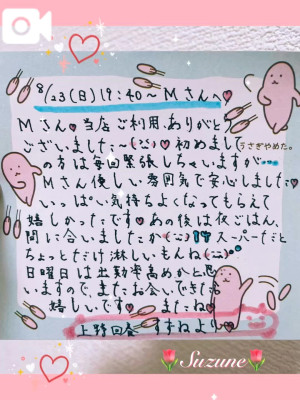 8/23(日)19:40〜Mさんへ♡
Mさん♡当店ご利用、ありがと
ございました〜(¨)♡初めまして
うさぎやめた。
の方は毎回緊張しちゃいますが…
Mさん優しい雰囲気で安心しました
いっぱい気持ちよくなってもらえて
嬉しかったです♡あの後は夜ごはん、
間に合いましたか(¨)!!スーパーだと
ちょっとだけ淋しいもんね(¨)
日曜日は出勤率高めかと思
いますので、またお会いできたら
嬉しいです♡またね♡
上野回春 すずねより♡
Suzune